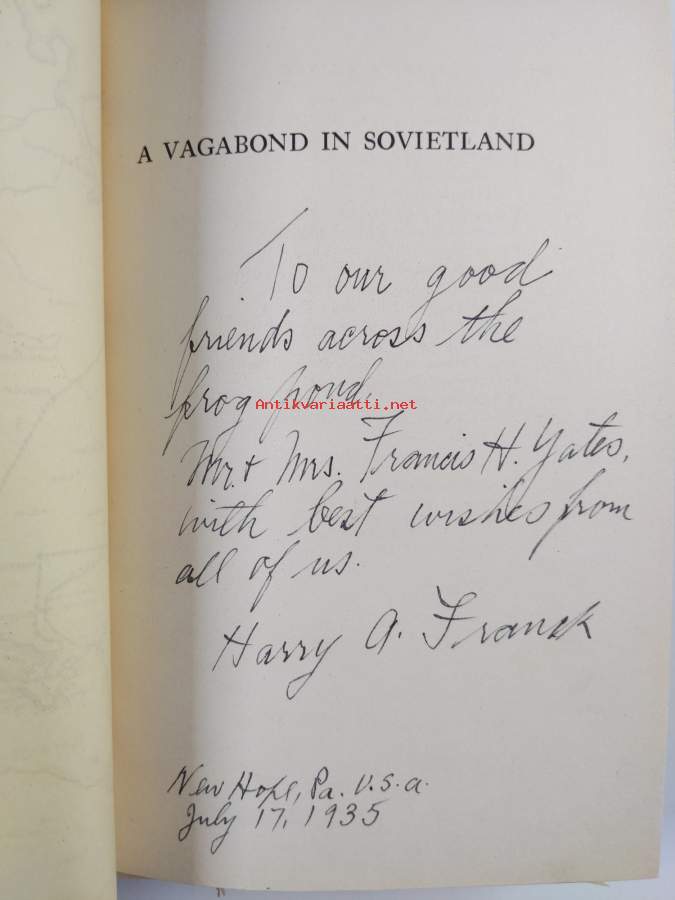 A VAGABOND IN SOVIETLAND
To our good
friends across the
frog pond
Antikvariaatti.net
Mr. + Mrs. Francis H. Yates,
with best wishes from
all of us.
Harry A. Franck
New Hope, Pa. U.S.A.
July 17, 1935